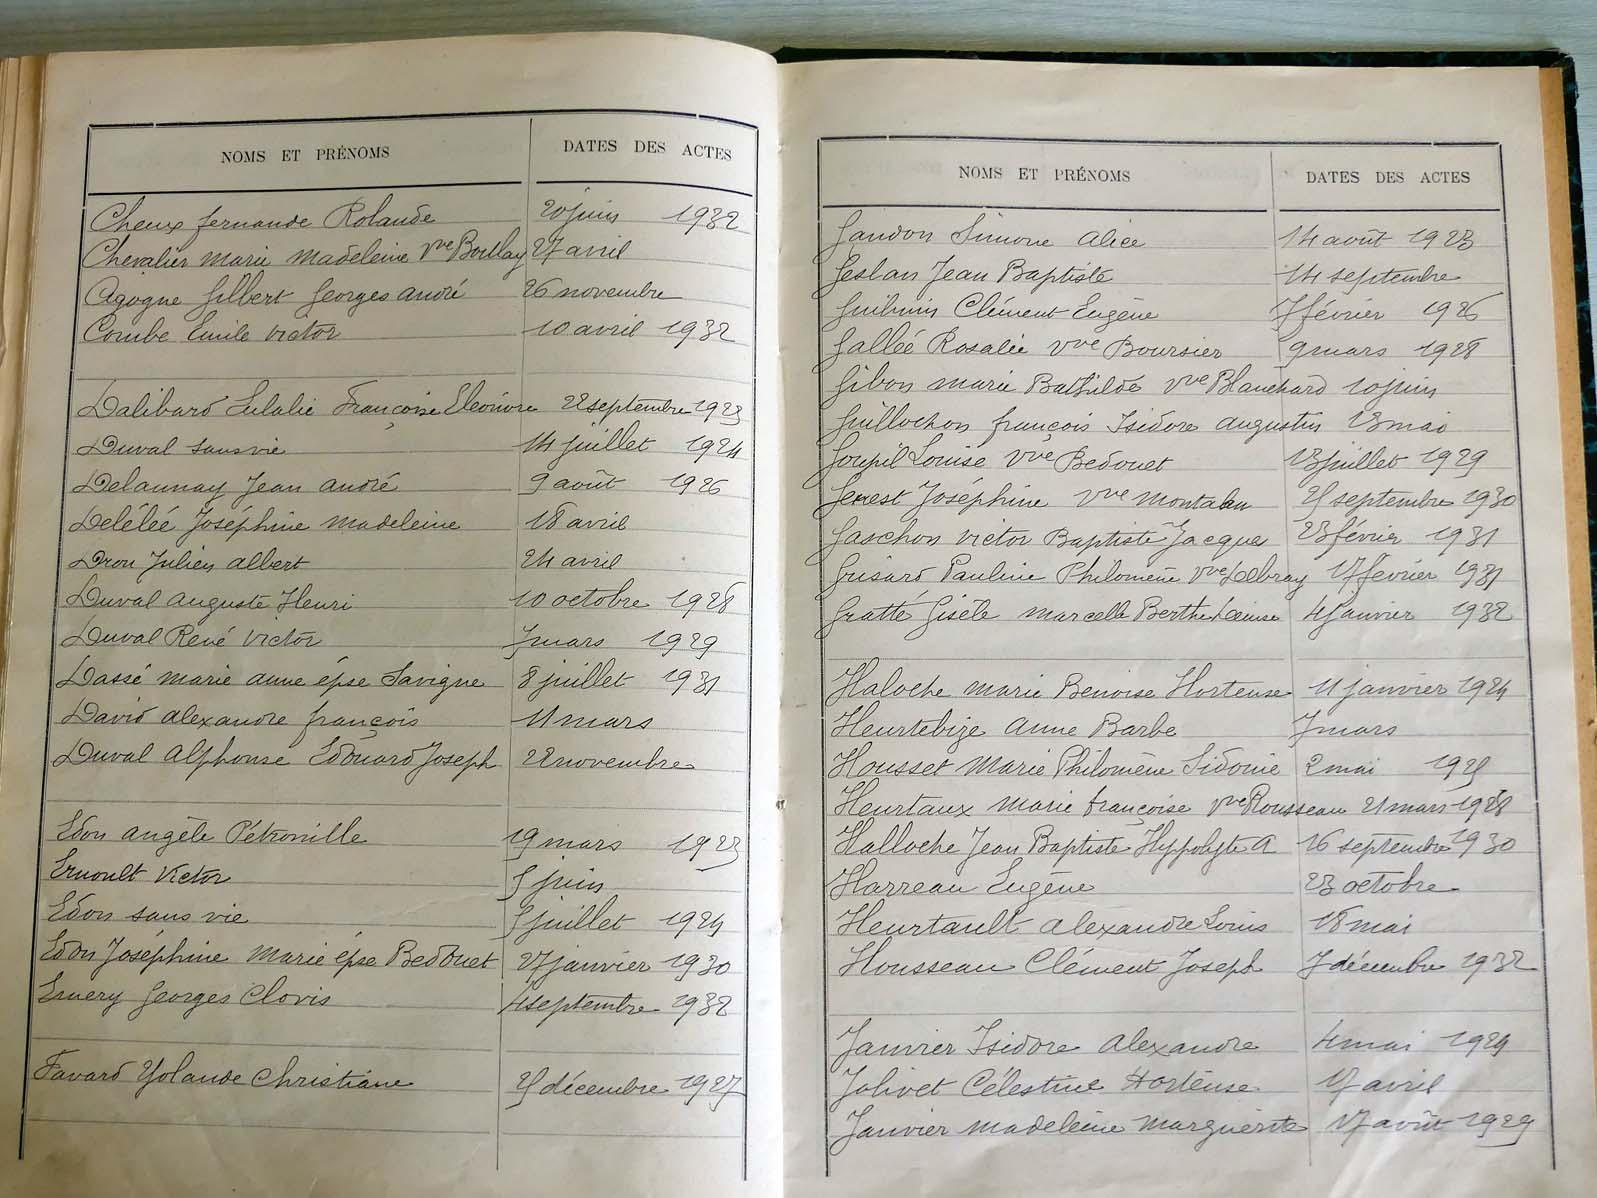 NOMS ET PRÉNOMS DATES DES ACTES
Cheux fernande Rolande 20 juin 1932
Chevalier marie madeleine Vve Boullay 27 avril
Agogne Gilbert Georges andré 26 novembre
Combe Emile victor 10 avril 1932
Dalibard Eulalie Françoise Eléonore 22 septembre 1923
Duval sans vie 14 juillet 1924
Delaunay Jean andré 9 août 1926
Delélée Joséphine madeleine 18 avril
Dron Julien albert 24 avril
Duval auguste Henri 10 octobre 1928
Duval René victor 7 mars 1929
Dassé marie anne épse Savigne 8 juillet 1931
David alexandre françois 11 mars
Duval Alphonse Edouard Joseph 22 novembre
Edon angèle Pétronille 19 mars 1923
Ernoult Victor 5 juin
Edon sans vie 5 juillet 1924
Edon Joséphine Marie épse Bedouet 27 janvier 1930
Emery Georges Clovis 4 septembre 1932
Favard Yolande Christiane 25 décembre 1927
NOMS ET PRÉNOMS DATES DES ACTES
Gandon Simone alice 14 août 1923
Geslan Jean Baptiste 14 septembre
Clément Eugène 7 février 1926
Gallée Rosalie vve Boursier 9 mars 1928
Gibon marie Bathilde vve Blanchard 10 juin
Guillochon françois Isidore augustin 13 mai
Goupil Louise vve Bedouet 13 juillet 1929
Genest Joséphine vve montaban 25 septembre 1930
Gaschon victor Baptiste Jacques 23 février 1931
Grisard Pauline Philomène Vve 17 février 1931
Gratté Gisèle marcelle Berthe Louise 4 janvier 1932
Haloche marie Benoise Hortense 11 janvier 1924
Heurtebize anne Barbe 7 mars
Housset marie Philomène Sidonie 2 mai 1925
Heurtaux marie françoise vve Rousseau 21 mars 1928
Halloche Jean Baptiste Hyppolyte A 16 septembre 1930
Harreau Eugène 23 octobre
Heurtault alexandre Louis 18 mai
Housseau Clément Joseph 7 décembre 1932
Janvier Isidore alexandre 4 mai 1924
Jolivet Célestine Hortense 17 avril
Janvier madeleine marguerite 17 août 1929